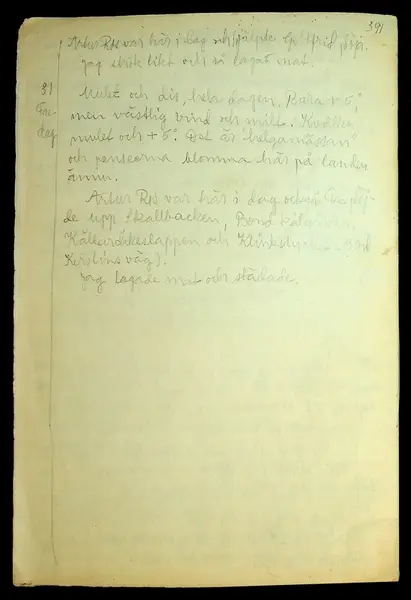 391
Artur Rs var här i dag och hjälpte
jag strök likt och så lagat mat.
31
Fre-
dag
Mulet och dis, hela dagen. Bara + 5°,
men västlig vind och milt. Kvällen
mulet och + 5°. Det är "helgamässan"
och penseerna blomma här på landen
ännu.
Artur Rs var här i dag och
de upp Skallbacken,
och
Kerstins väg).
Jag lagade mat och städade.